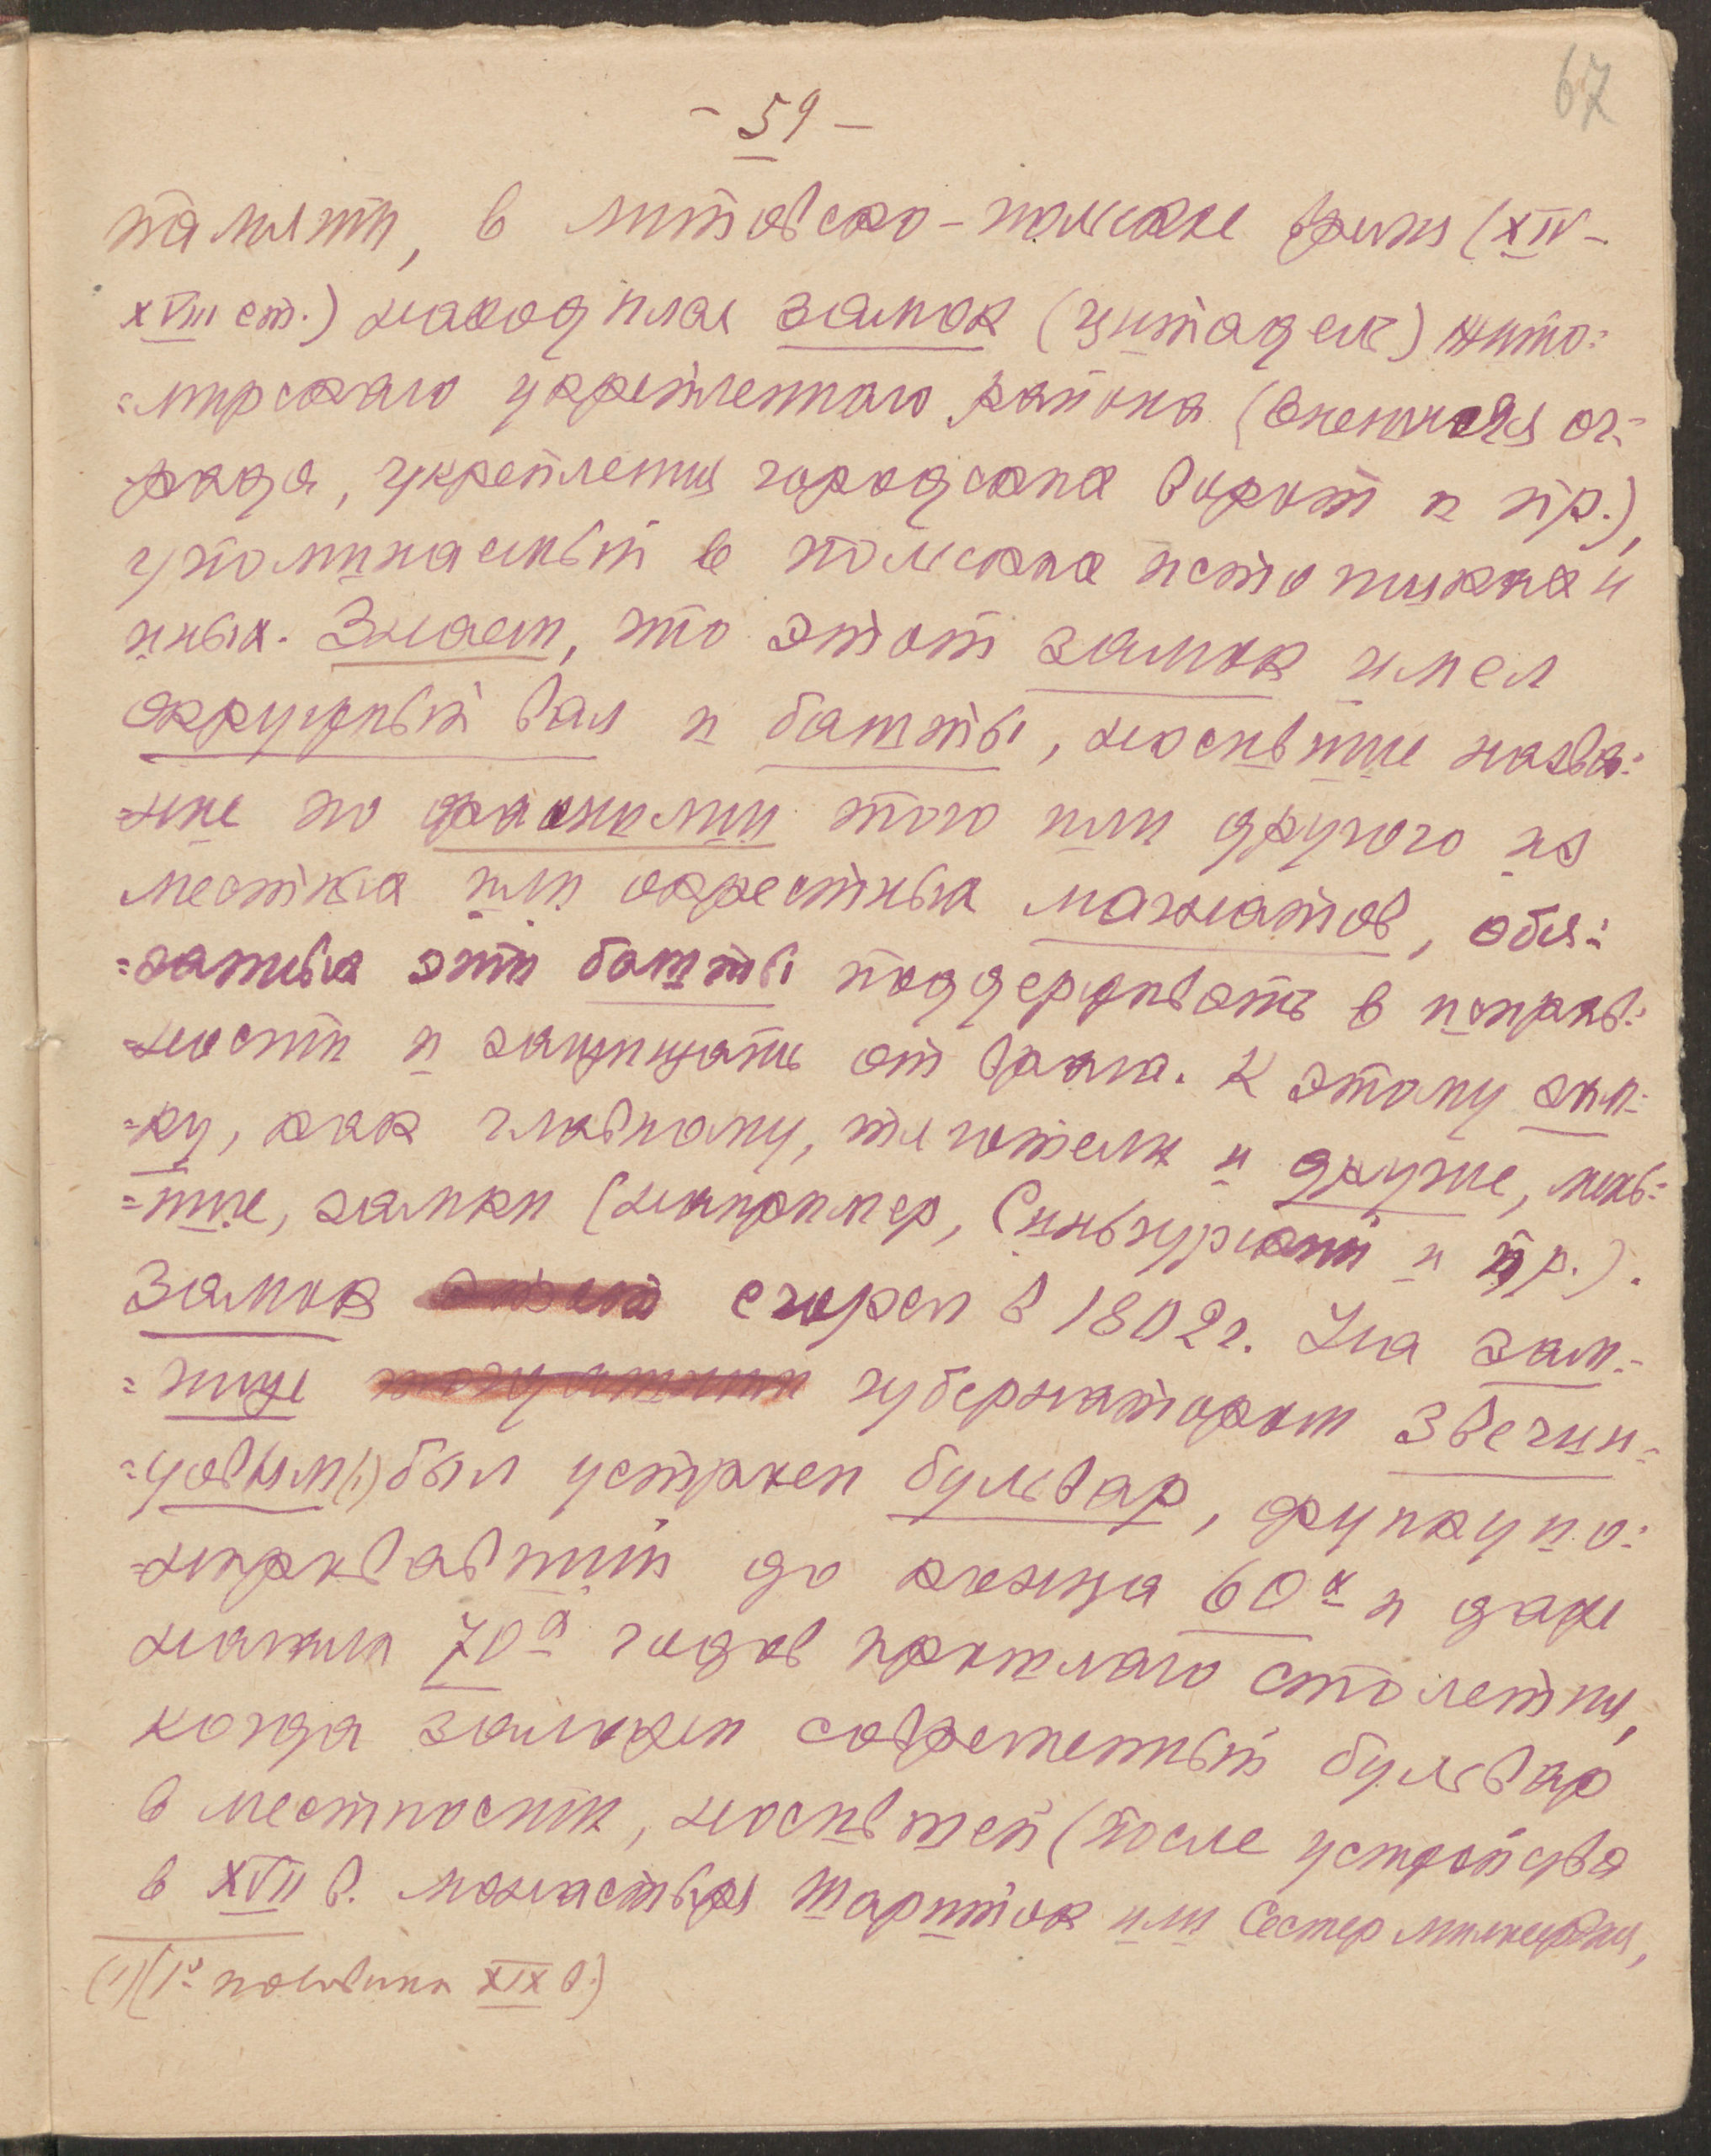 67
- 59 -
памяти, в литовско-польское время (XIV-
XVIII ст.) находился замок (цитадель) жито=
=мирского укрепленного района (внешняя ог=
рада, укрепления городских ворот и пр.),
упоминаемый в польских источниках и
иных. Знаем, что этот замок имел
окружный вал и башты, носившие назва=
=ние по фамилии того или другого из
местных или окрестных магнатов, обя=
=занных эти башты поддерживать в исправ=
=ности и защищать от врага. К этому зам=
=ку, как главному, тяготели и другие, мень=
=шие, замки (например, Синьгурский и пр.).
Замок сгорел в 1802 г. На зам=
=чище губернатором Звегин=
=цовым (1) был устроен бульвар, функцио=
=нировавший до конца 60х и даже
начала 70х годов прошлаго столетия,
когда заложен современный бульвар
в местности, носившей (после устройства
в XVII в. монастыря Шариток или Сестер милосердия,
(1) (1я половина XIX в.)